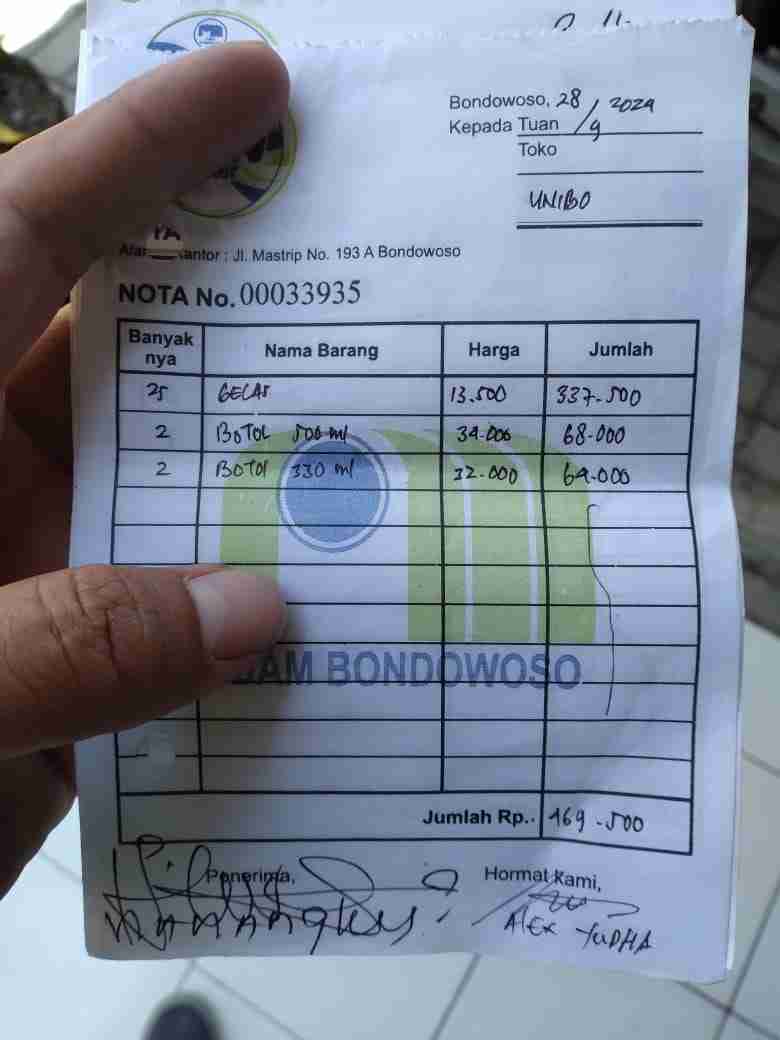 Bondowoso, 28/9 2024
Kepada Tuan
Toko
UNIBO
Kantor : Jl. Mastrip No. 193 A Bondowoso
NOTA No. 00033935
Banyak nya Nama Barang Harga Jumlah
25 GELAS 13.500 337.500
2 BOTOL 500 ml 34.000 68.000
2 BOTOL 330 ml 32.000 64.000
BONDOWOSO
Jumlah Rp.. 469.500
Penerima, Hormat Kami,
ALEX YUDHA